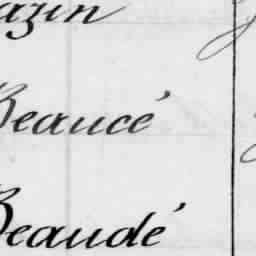 azin
Beaucé
Beaudé